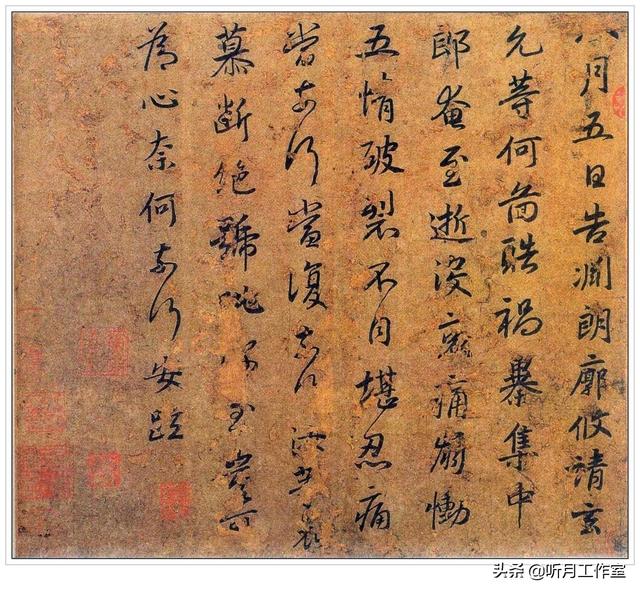 八月五日告淵朗廓攸靖玄
允等何圖酷禍暴集中
郎奄至逝沒哀痛崩慟
五情破裂不自堪忍痛
當奈何當復奈何汝等哀
慕斷絕號咷深至豈可
為心奈何奈何安疏
头条 @听月工作室